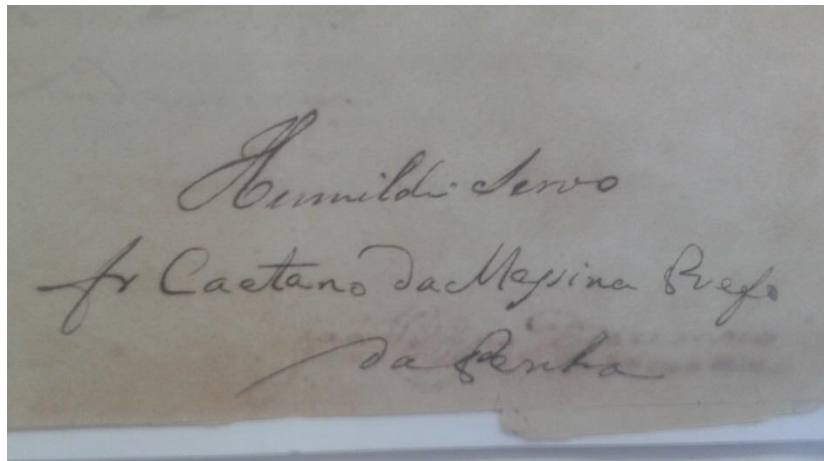 Humilde Servo
fr Caetano da Messina Prefo
da Penha